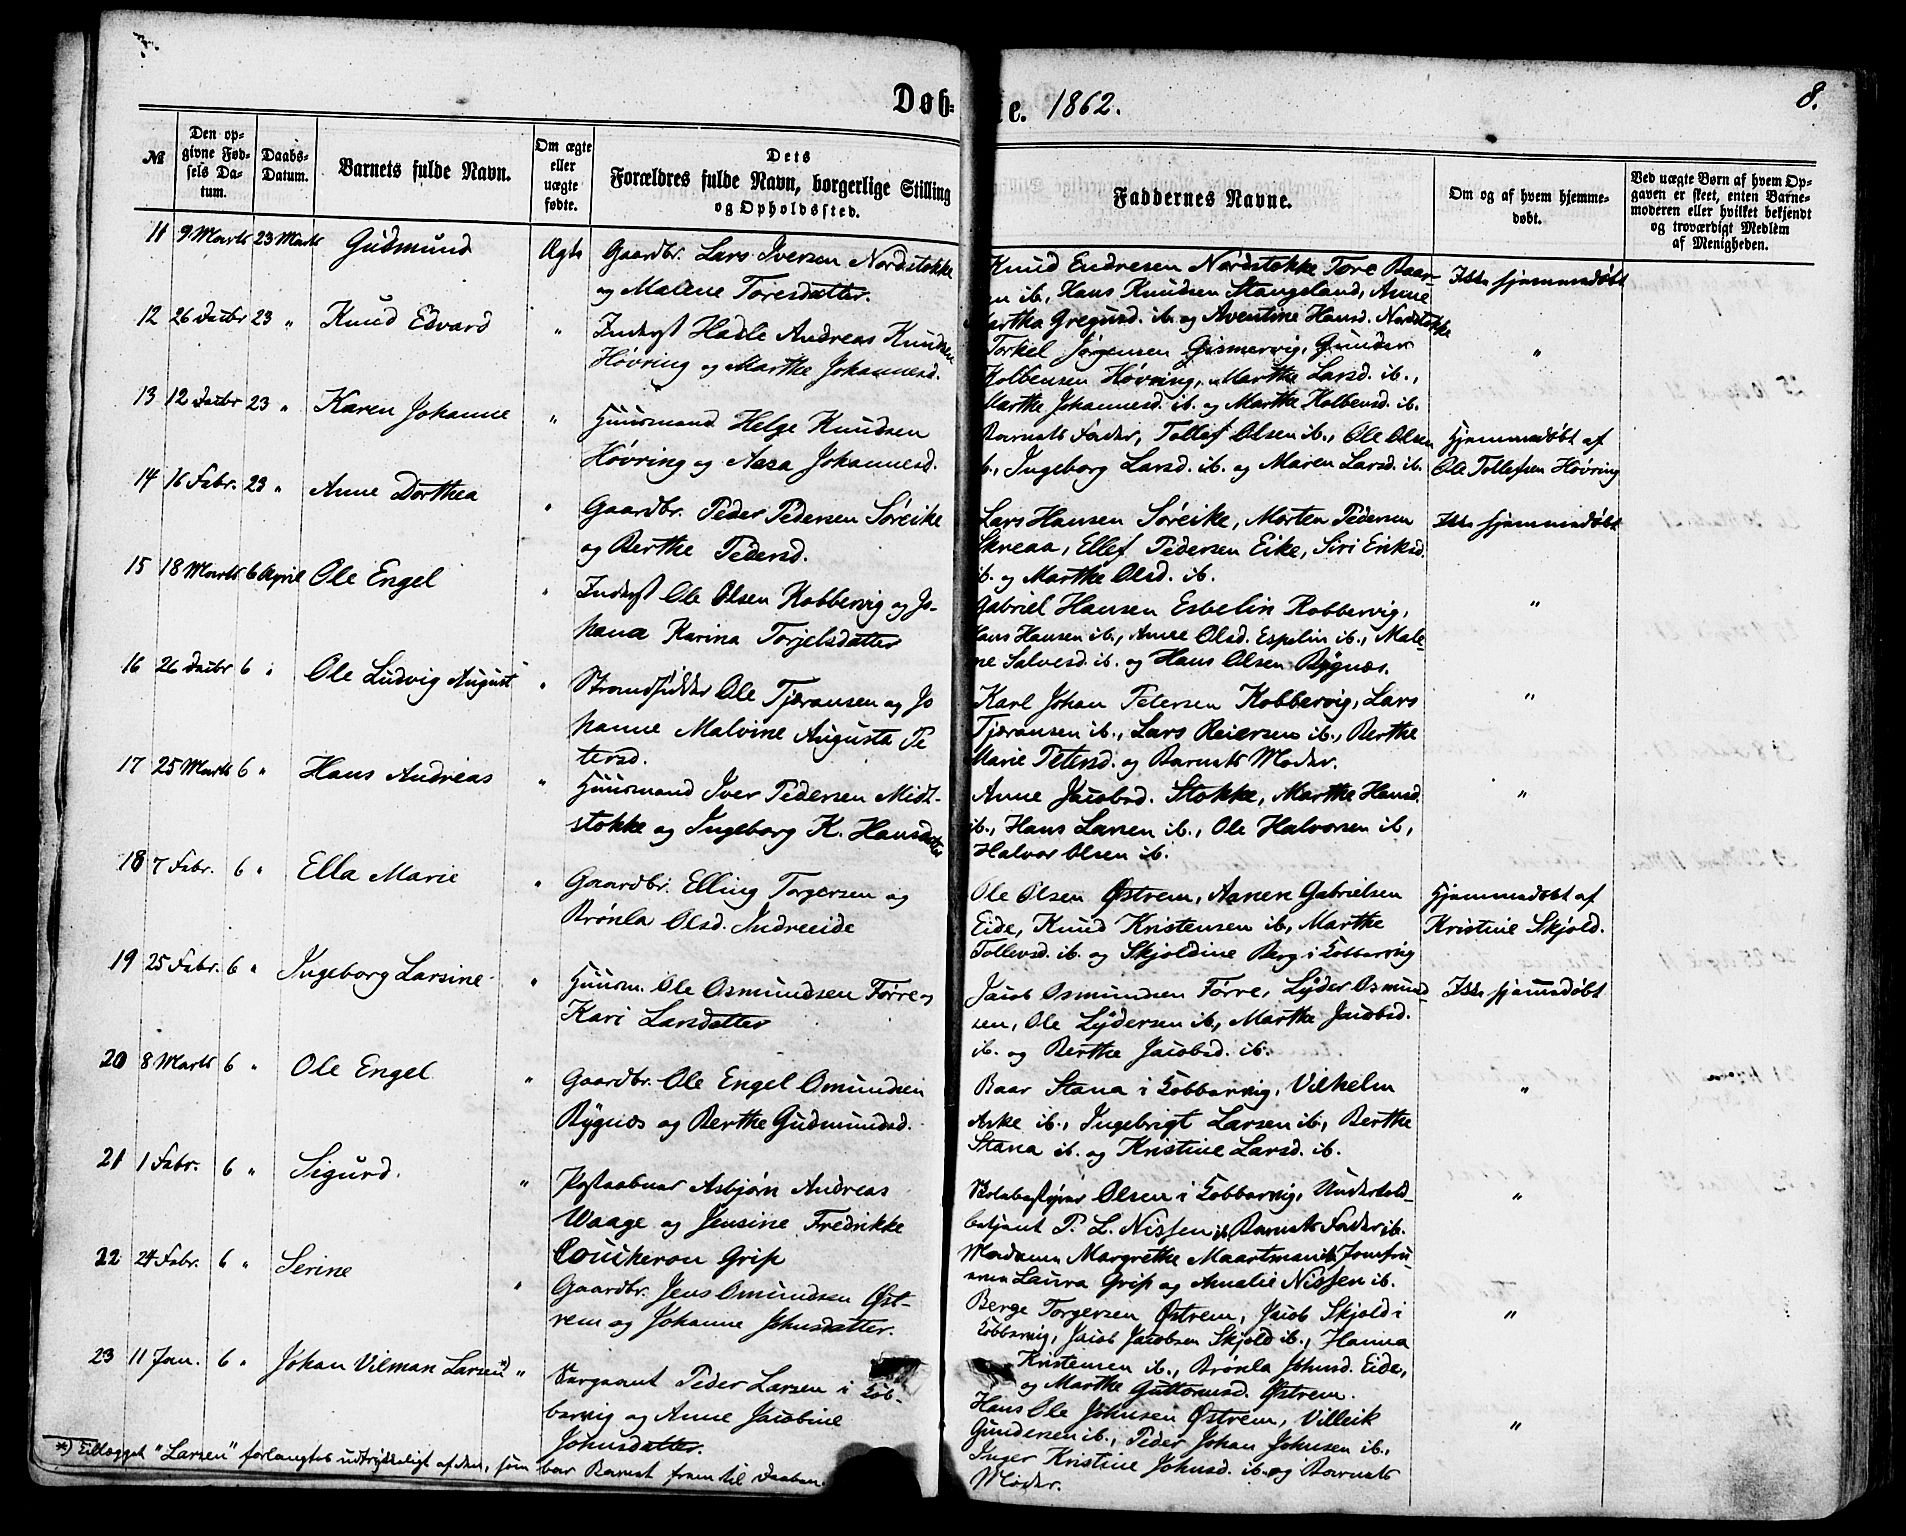 Døb-
te. 1862.
8.
№
Den op-
givne Fød-
sels Da-
tum.
Daabs-
Datum.
Barnets fulde Navn.
Om ægte
eller
uægte
fødte.
Dets
Forældres fulde Navn, borgerlige Stilling
og Opholdssted.
Faddernes Navne.
Om og af hvem hjemme-
døbt.
Ved uægte Børn af hvem Op-
gaven er skeet, enten Barne-
moderen eller hvilket bekjendt
og troværdigt Medlem
af Menigheden.
11 9 Marts 23 Marts Gudmund Ægte Gaardbr. Lars Iversen Nordstokke
og Malene Toresdatter.
Knud Endresen Nordstokke Tore Baar-
en ib., Hans Knudsen Stangeland, Anne
Martha Gregusd. ib. og Aventine Hansd. Nordstokke
Ikke hjemmedøbt
12 26 Decbr 23 " Knud Edvard " Inderst Hadle Andreas Knudsen
Høvring og Marthe Johannesd.
Torkel Jørgensen Gismervig, Gunder
Kolbensen Høvring, Marthe Larsd. ib.,
Marthe Johannesd. ib. og Marthe Kolbensd. ib.
"
13 12 Decbr 23 " Karen Johanne " Huusmand Helge Knudsen
Høvring og Aasa Johannesd.
Barnets Fader, Tollef Olsen ib., Ole Olsen
ib., Ingeborg Larsd. ib. og Maren Larsd. ib.
Hjemmedøbt af
Ole Tollefsen Høvring
14 16 Febr. 23 " Anne Dorthea " Gaardbr. Peder Pedersen Søreike
og Berthe Pedersd.
Lars Hansen Søreike, Morten Pedersen
Skreaa, Ellef Pedersen Eike, Siri Eriksd.
ib. og Marthe Olsd. ib.
Ikke hjemmedøbt
15 18 Marts 6 April Ole Engel " Inderst Ole Olsen Kobbervig og Jo-
hana Karina Torjelsdatter
Gabriel Hansen Esbelin Kobbervig,
Hans Hansen ib., Anne Olsd. Espelin ib., Male-
ne Salvesd. ib. og Hans Olsen Bygnæs.
"
16 26 Decbr 6 " Ole Ludvig August " Strandsidder Ole Tjøransen og Jo
hanne Malvine Augusta Pe
tersd.
Karl Johan Petersen Kobbervig, Lars
Tjøransen ib., Lars Reiersen ib., Berthe
Marie Petersd. og Barnets Moder.
"
17 25 Marts 6 " Hans Andreas " Huusmand Iver Pedersen Midt-
stokke og Ingeborg K. Hansdatter
Anne Jacobsd. Stokke, Marthe Hansd.
ib., Hans Larsen ib., Ole Halvorsen ib.,
Halvor Olsen ib.
"
18 7 Febr. 6 " Ella Marie " Gaardbr. Elling Torgersen og
Brønla Olsd. Indreeide
Ole Olsen Østrem, Aanen Gabrielsen
Eide, Knud Kristensen ib., Marthe
Tollevsd. ib. og Skjoldine Berg i Cobbervig
Hjemmedøbt af
Kristine Skjold.
19 25 Febr. 6 " Ingeborg Larsine " Huusm. Ole Osmundsen Førre og
Kari Larsdatter
Jacob Osmundsen Førre, Lyder Osmund-
sen, Ole Lydersen ib., Marthe Jacobsd.
ib. og Berthe Jacobsd. ib.
Ikke hjemmedøbt
20 8 Marts 6 " Ole Engel " Gaardbr. Ole Engel Omundsen
Bygnæs og Berthe Gudmundsd.
Baar Stana i Cobbervig, Vilhelm
Aske ib., Ingebrigt Larsen ib., Berthe
Stana ib. og Kristine Larsd. ib.
"
21 1 Febr. 6 " Sigurd. " Postaabner Asbjørn Andreas
Waage og Jensine Fredrikke
Coucheron Grip
Skolebestyrer Olsen i Cobbervig, Undertold-
betjent P. L. Nissen ib. Barnets Fader ib.
Madame Margrethe Maartman ib. Jomfru
erne Laura Grip og Amalie Nissen ib.
"
22 24 Febr. 6 " Serine " Gaardbr. Jens Omundsen Øst-
rem og Johanne Johnsdatter.
Berge Torgersen Østrem, Jacob Skjold i
Cobbervig, Jacob Jacobsen Skjold ib., Hanna
Kristensen ib., Brønla Johnsd. Eide,
og Marthe Guttormsd. Østrem.
"
23 11 Jan. 6 " Johan Vilman Larsen *) " Sergeant Peder Larsen i Cob-
bervig og Anne Jacobine
Johnsdatter.
Hans Ole Johnsen Østrem, Villeik
Gundersen ib., Peder Johan Johnsen ib.,
Inger Kristine Johnsd. ib. og Barnets
Moder.
"
*) Tillægget "Larsen" forlangtes udtrykkeligt af den, som bar Barnet frem til Daaben.